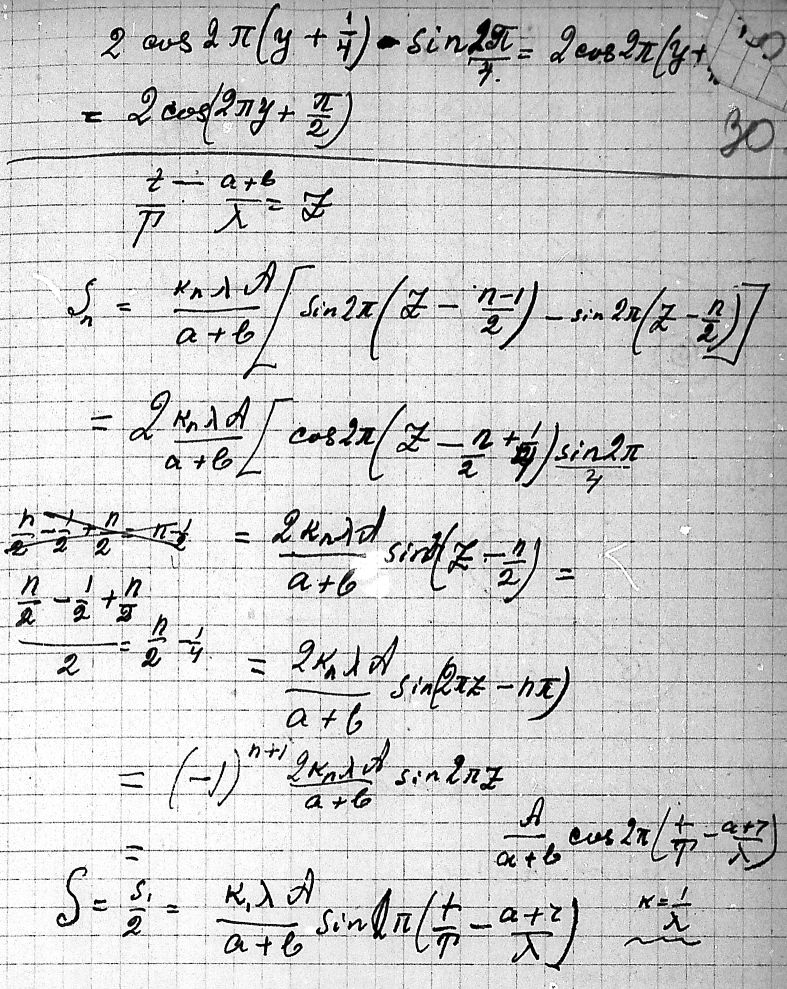 2 cos 2π(y + 1/4) · sin 2π/4 = 2cos2π(y+
= 2cos(2πy + π/2)
30
t/T − (a+b)/λ = Z
S_n = (κ_n λ A)/(a+b) [sin2π(Z − (n−1)/2) − sin2π(Z − n/2)]
= 2 (κ_n λ A)/(a+b) [cos2π(Z − n/2 + 1/4) sin2π/4
n/2 − 1/2 + n/2 = n − 1/2
= (2κ_n λ A)/(a+b) sin (Z − n/2) =
(n/2 − 1/2 + n/2)/2 = n/2 − 1/4
= (2κ_n λ A)/(a+b) sin(2πz − nπ)
= (−1)^(n+1) (2κ_n λ A)/(a+b) sin2πZ
=
A/(a+b) cos2π(t/T − (a+r)/λ)
S = S₁/2 = (κ₁ λ A)/(a+b) sin2π(t/T − (a+r)/λ) κ = 1/λ